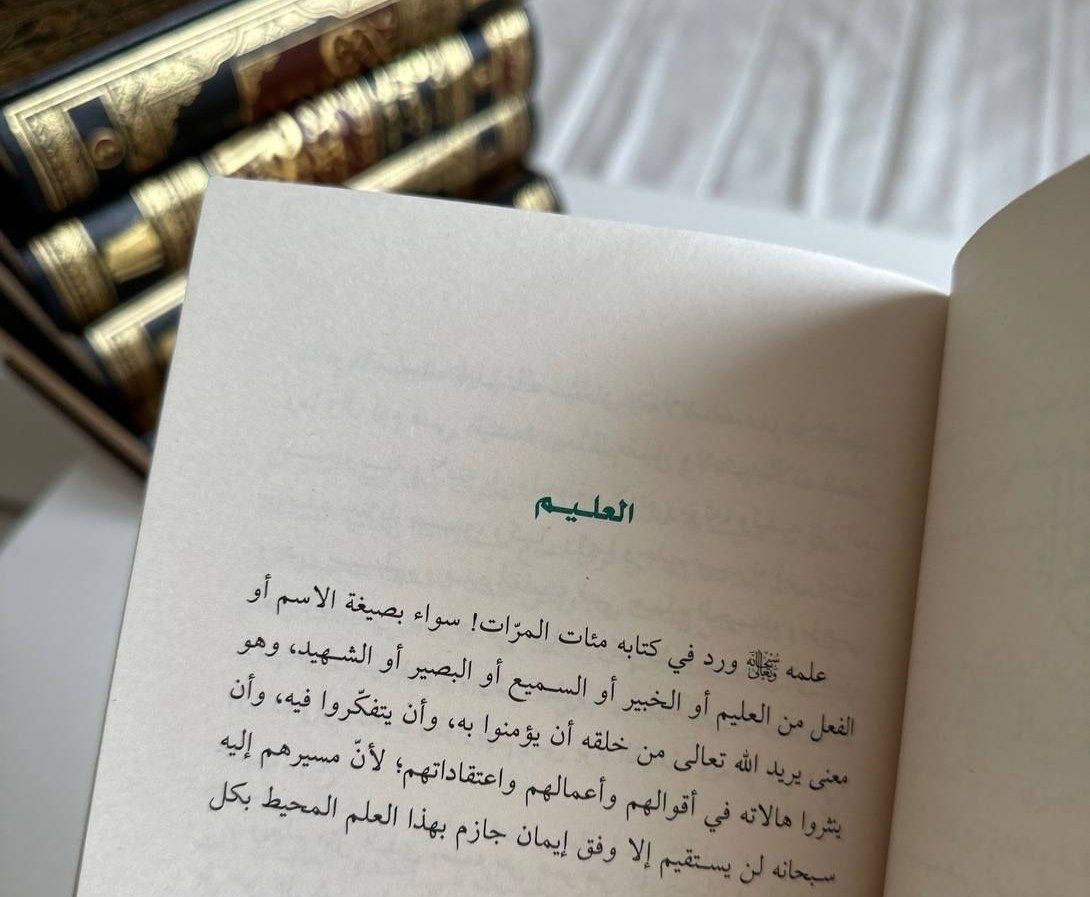 العليم
علمه ﷾ ورد في كتابه مئات المرّات! سواء بصيغة الاسم أو
الفعل من العليم أو الخبير أو السميع أو البصير أو الشهيد، وهو
معنى يريد الله تعالى من خلقه أن يؤمنوا به، وأن يتفكّروا فيه، وأن
ينثروا هالاته في أقوالهم وأعمالهم واعتقاداتهم؛ لأنّ مسيرهم إليه
سبحانه لن يستقيم إلا وفق إيمان جازم بهذا العلم المحيط بكل